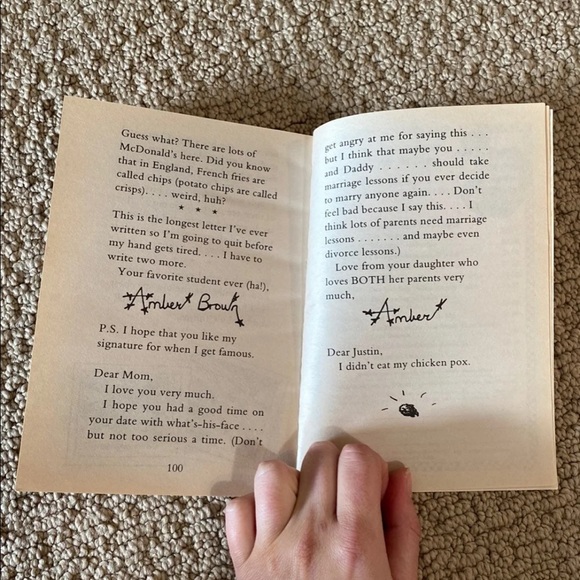 Guess what? There are lots of
McDonald's here. Did you know
that in England, French fries are
called chips (potato chips are called
crisps). . . . weird, huh?
* * *
This is the longest letter I've ever
written so I'm going to quit before
my hand gets tired. . . . I have to
write two more.
Your favorite student ever (ha!),
Amber Brown
P.S. I hope that you like my
signature for when I get famous.
Dear Mom,
I love you very much.
I hope you had a good time on
your date with what's-his-face . . . .
but not too serious a time. (Don't
100
get angry at me for saying this . . .
but I think that maybe you . . . . .
and Daddy . . . . . . should take
marriage lessons if you ever decide
to marry anyone again. . . . Don't
feel bad because I say this. . . . I
think lots of parents need marriage
lessons . . . . . . . and maybe even
divorce lessons.)
Love from your daughter who
loves BOTH her parents very
much,
Amber
Dear Justin,
I didn't eat my chicken pox.